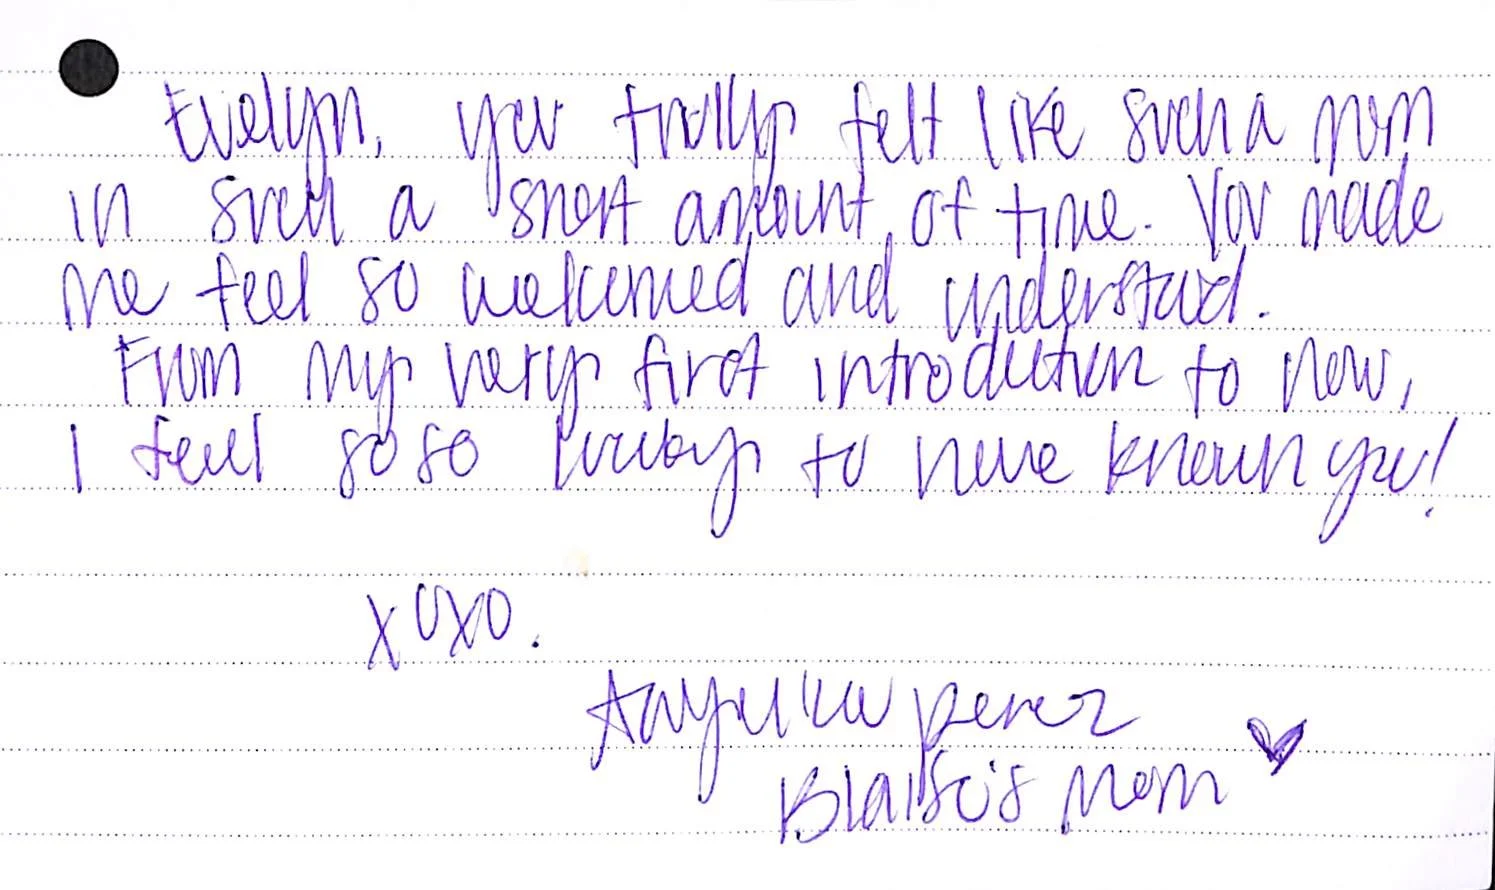 Evelyn, you trully felt like such a mom
in such a short amount of time. You made
me feel so welcomed and understood.
From my very first introduction to now,
I feel so so lucky to have known you!
xoxo.
Perez
Blaise's Mom